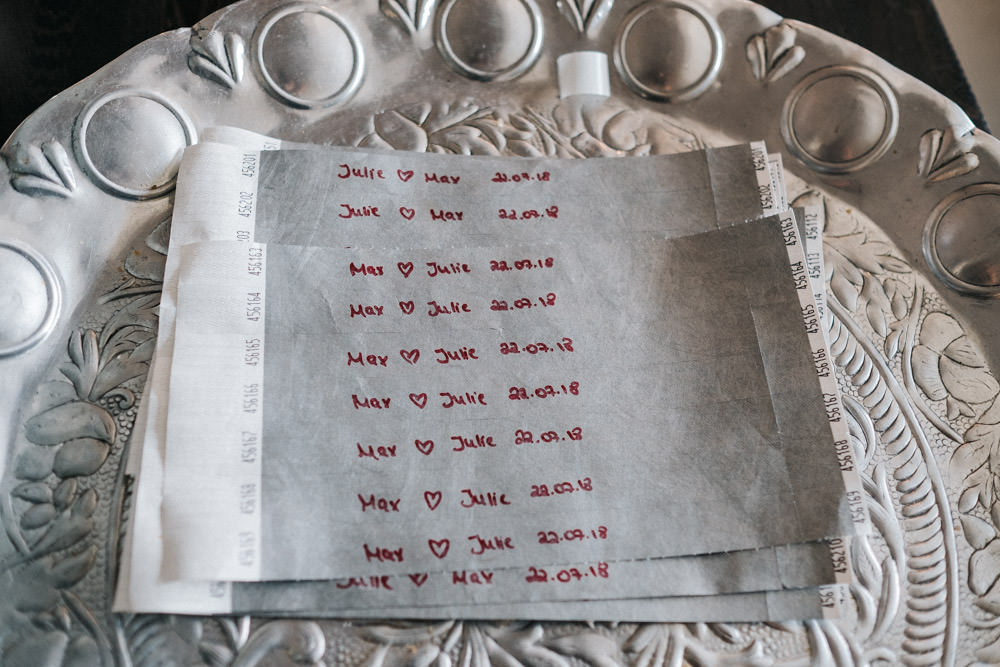 456201 Julie ♡ Max 22.07.18 456201
456202 Julie ♡ Max 22.07.18 456202
456163 Max ♡ Julie 22.07.18 456163
456164 Max ♡ Julie 22.07.18 456164
456165 Max ♡ Julie 22.07.18 456165
456166 Max ♡ Julie 22.07.18 456166
456167 Max ♡ Julie 22.07.18 456167
456168 Max ♡ Julie 22.07.18 456168
456169 Max ♡ Julie 22.07.18 456169
Julie ♡ Max 22.07.18
456112
456113